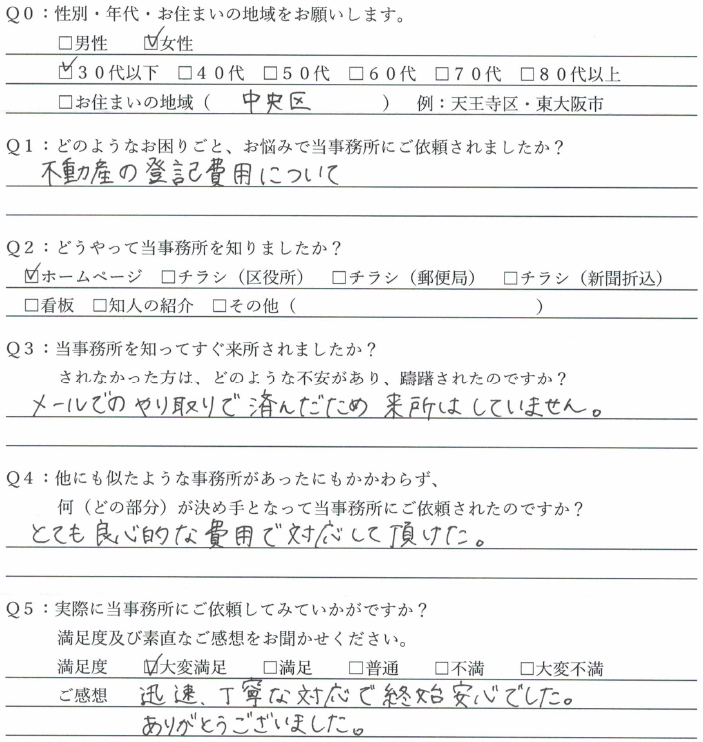 Q0：性別・年代・お住まいの地域をお願いします。
□男性　☑女性
☑30代以下　□40代　□50代　□60代　□70代　□80代以上
□お住まいの地域（　中央区　）　例：天王寺区・東大阪市
Q1：どのようなお困りごと、お悩みで当事務所にご依頼されましたか？
不動産の登記費用について
Q2：どうやって当事務所を知りましたか？
☑ホームページ　□チラシ（区役所）　□チラシ（郵便局）　□チラシ（新聞折込）
□看板　□知人の紹介　□その他（　　　）
Q3：当事務所を知ってすぐ来所されましたか？
されなかった方は、どのような不安があり、躊躇されたのですか？
メールでのやり取りで済んだため来所はしていません。
Q4：他にも似たような事務所があったにもかかわらず、
何（どの部分）が決め手となって当事務所にご依頼されたのですか？
とても良心的な費用で対応して頂けた。
Q5：実際に当事務所にご依頼してみていかがですか？
満足度及び素直なご感想をお聞かせください。
満足度　☑大変満足　□満足　□普通　□不満　□大変不満
ご感想　迅速、丁寧な対応で終始安心でした。
ありがとうございました。